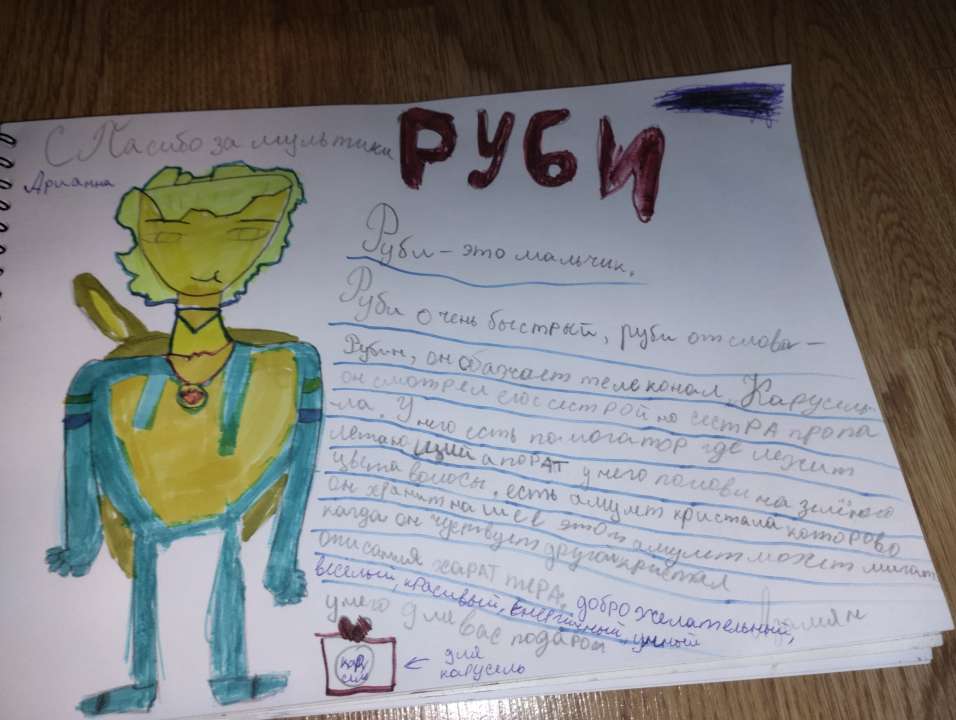 СПасибо за мультики
Арианна
РУБИ
Руби – это мальчик.
Руби очень быстрый, руби от слова –
Рубин, он обажает телеканал, Карусель
он смотрел его с сестрой но сестра пропа
ла. У него есть помогатор где лежит
летающий апорат у него половина зелёного
цвета волосы, есть амулет кристала которово
он хранит на шее этот амулет может мигат
когда он чуствует другой кристал
описания харатера: доброжелательный,
весёлый, красивый, енергийный, умный
у него для вас подарок
кару
сель
← для
карусель